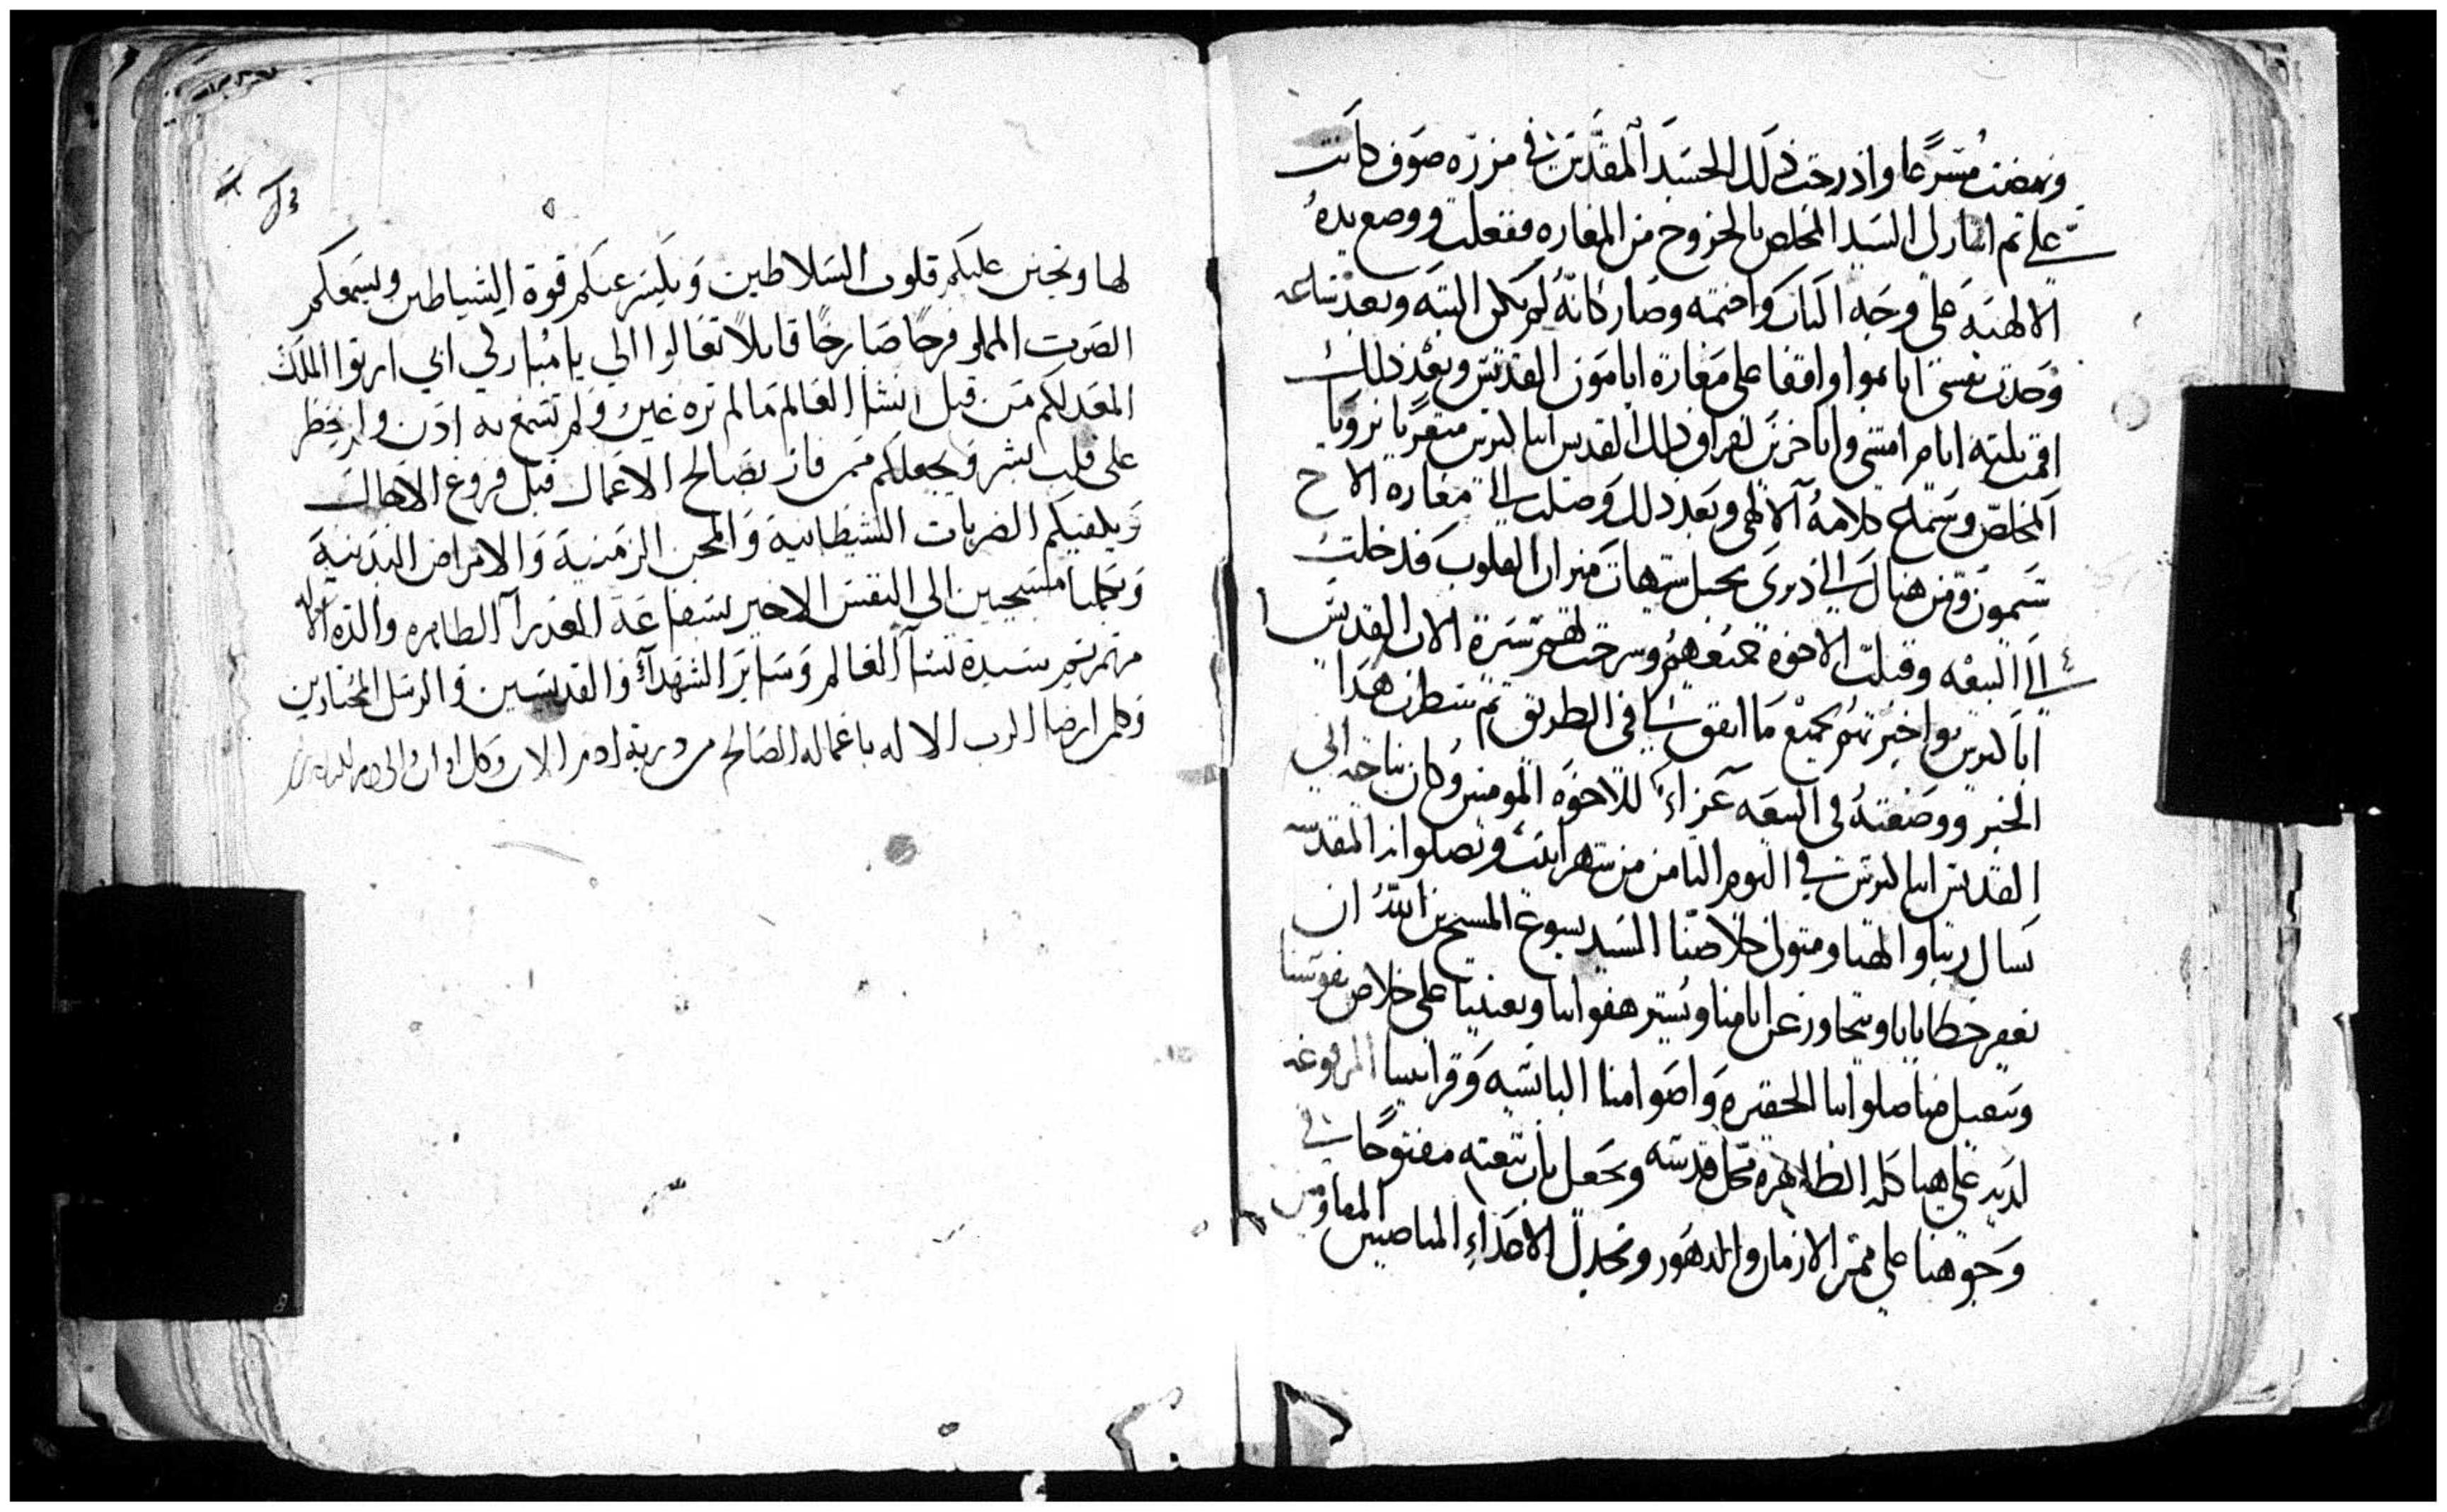 ونهضت مسرعا وادرجت ذلك الجسد المقدس في مزره صوف كانت
علي ثم اشار لي السيد المخلص بالخروج من المغاره ففعلت ووضع يده
الالهية على وجه الباب واختمه وصار كانه لم يكن البته وبعد ساعه
وجدت نفسي انا بموا واقفا على مغارة انبا مون القديس وبعد ذلك
اقمت ثلثة ايام امشي وانا حزين لفراق ذلك القديس انبا لترس متعزيا برويا
المخلص وسماع كلامه الالهي وبعد ذلك وصلت الى مغاره الاخ
سمون ومن هناك الى ديري بجبل شيهات ميزان القلوب فدخلت
الى البيعه وقبلت الاخوة جميعهم وشرحت لهم سيرة الاب القديس
انبا لترس واخبرتهم بجميع ما اتفق لي في الطريق ثم سطرت هذا
الخبر ووضعته في البيعه عزاء للاخوه المومنين وكان نياحة ابي
القديس انبا لترس في اليوم الثامن من شهر ابيب وبصلواته المقدسه
نسال ربنا والهنا ومتولي خلاصنا السيد يسوع المسيح بن الله ان
يغفر خطايانا ويتجاوز عن اثامنا ويستر هفواتنا ويعنينا على خلاص نفوسنا
ويتقبل منا صلواتنا الحقيره واصوامنا البائسه وقرابيننا المرفوعه
لديه على هياكله الطاهره محل قدسه ويجعل باب بيعته مفتوحا في
وجوهنا على ممر الازمان والدهور ويخذل الاعداء المناصبين المقاومين
لها ويحنن عليكم قلوب السلاطين ويكسر عنكم قوة الشياطين ويسمعكم
الصوت المملو فرحا صارخا قايلا تعالوا الي يا مباركي ابي ارثوا الملك
المعد لكم من قبل انشا العالم ما لم تره عين ولم تسمع به اذن ولم يخطر
على قلب بشر ويجعلكم ممن فاز بصالح الاعمال قبل فروغ الاجال
ويكفيكم الضربات الشيطانية والمحن الزمنية والامراض البدنية
ويجعلنا مسيحيين الى النفس الاخير بشفاعة العذرا الطاهره والدة الاله
مرتمريم سيدة نسا العالم وساير الشهدآء والقديسين والرسل المختارين
وكلمن ارضا الرب الاله باعماله الصالحه من درية ادم الان وكل اوان والى دهر